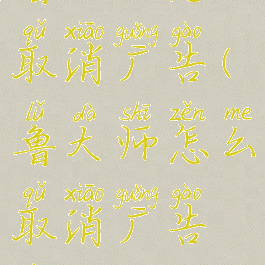 qǔ xiāo guǎng gào
取消广告(
lǔ dà shī zěn me
鲁大师怎么
qǔ xiāo guǎng gào
取消广告